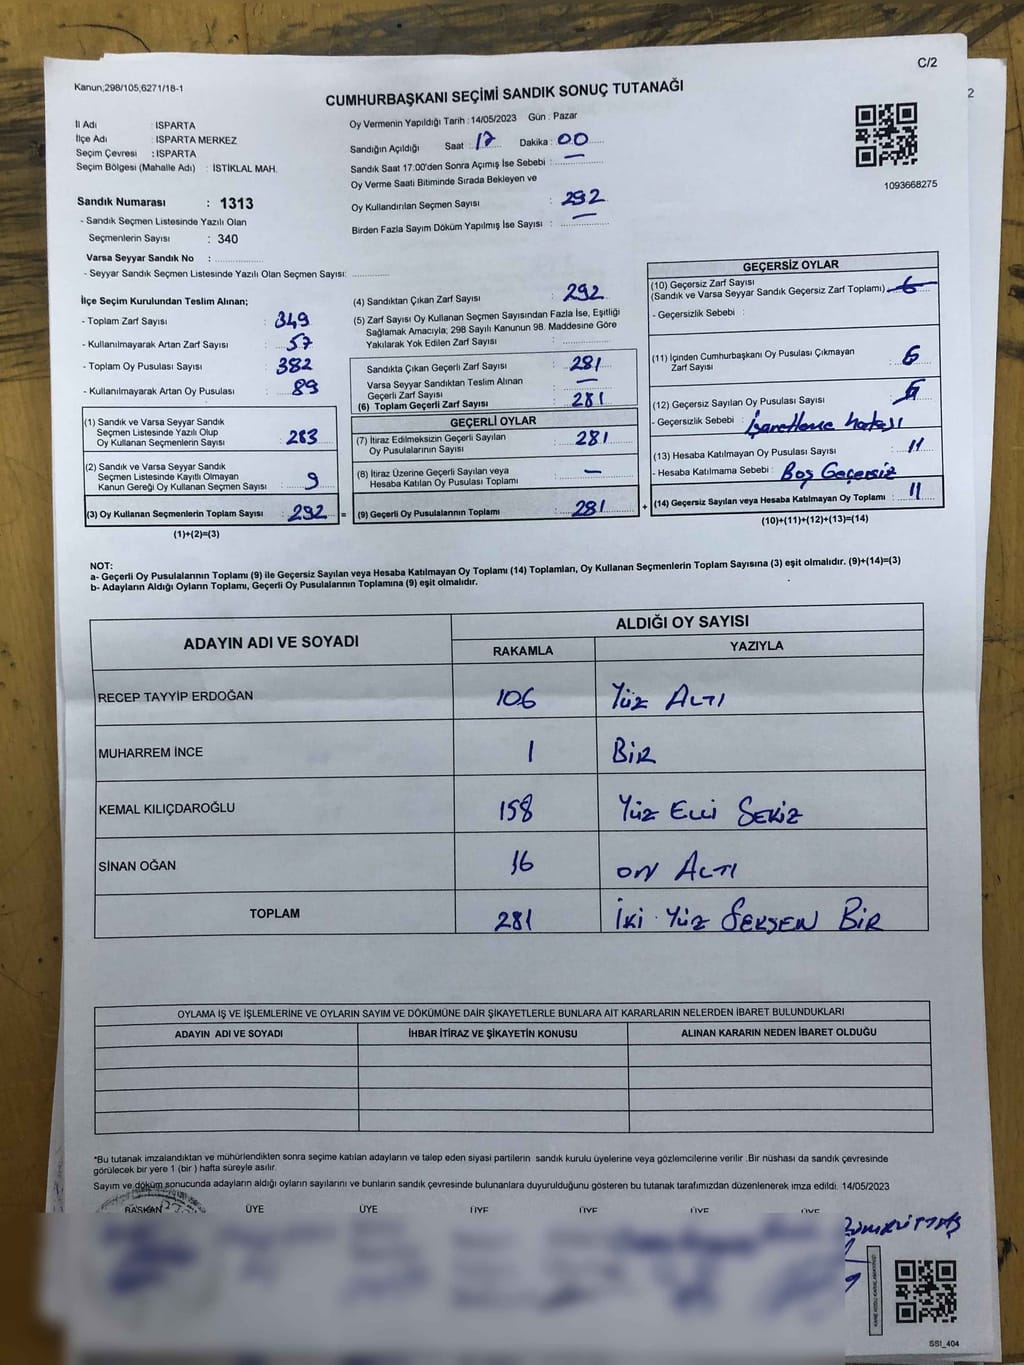 C/2
Kanun,298/105,6271/18-1
CUMHURBAŞKANI SEÇİMİ SANDIK SONUÇ TUTANAĞI
2
İl Adı : ISPARTA
İlçe Adı : ISPARTA MERKEZ
Seçim Çevresi : ISPARTA
Seçim Bölgesi (Mahalle Adı) : İSTİKLAL MAH.
Sandık Numarası : 1313
- Sandık Seçmen Listesinde Yazılı Olan
Seçmenlerin Sayısı : 340
Varsa Seyyar Sandık No :
- Seyyar Sandık Seçmen Listesinde Yazılı Olan Seçmen Sayısı:
Oy Vermenin Yapıldığı Tarih : 14/05/2023 Gün : Pazar
Sandığın Açıldığı Saat : 17 Dakika : 00
Sandık Saat 17.00'den Sonra Açımış İse Sebebi : —
Oy Verme Saati Bitiminde Sırada Bekleyen ve
Oy Kullandırılan Seçmen Sayısı : 292
Birden Fazla Sayım Döküm Yapılmış İse Sayısı : —
1093668275
İlçe Seçim Kurulundan Teslim Alınan;
- Toplam Zarf Sayısı : 349
- Kullanılmayarak Artan Zarf Sayısı : 57
- Toplam Oy Pusulası Sayısı : 382
- Kullanılmayarak Artan Oy Pusulası : 89
(1) Sandık ve Varsa Seyyar Sandık
Seçmen Listesinde Yazılı Olup
Oy Kullanan Seçmenlerin Sayısı : 283
(2) Sandık ve Varsa Seyyar Sandık
Seçmen Listesinde Kayıtlı Olmayan
Kanun Gereği Oy Kullanan Seçmen Sayısı : 9
(3) Oy Kullanan Seçmenlerin Toplam Sayısı : 292 =
(1)+(2)=(3)
(4) Sandıktan Çıkan Zarf Sayısı : 292
(5) Zarf Sayısı Oy Kullanan Seçmen Sayısından Fazla İse, Eşitliği
Sağlamak Amacıyla; 298 Sayılı Kanunun 98. Maddesine Göre
Yakılarak Yok Edilen Zarf Sayısı :
Sandıkta Çıkan Geçerli Zarf Sayısı : 281
Varsa Seyyar Sandıktan Teslim Alınan
Geçerli Zarf Sayısı : —
(6) Toplam Geçerli Zarf Sayısı : 281
GEÇERLİ OYLAR
(7) İtiraz Edilmeksizin Geçerli Sayılan
Oy Pusulalarının Sayısı : 281
(8) İtiraz Üzerine Geçerli Sayılan veya
Hesaba Katılan Oy Pusulası Toplamı : —
(9) Geçerli Oy Pusulalarının Toplamı : 281 +
GEÇERSİZ OYLAR
(10) Geçersiz Zarf Sayısı
(Sandık ve Varsa Seyyar Sandık Geçersiz Zarf Toplamı) :
- Geçersizlik Sebebi :
(11) İçinden Cumhurbaşkanı Oy Pusulası Çıkmayan
Zarf Sayısı :
(12) Geçersiz Sayılan Oy Pusulası Sayısı :
- Geçersizlik Sebebi : İşaretleme hatası
(13) Hesaba Katılmayan Oy Pusulası Sayısı : 11
- Hesaba Katılmama Sebebi : Boş Geçersiz
(14) Geçersiz Sayılan veya Hesaba Katılmayan Oy Toplamı : 11
(10)+(11)+(12)+(13)=(14)
NOT:
a- Geçerli Oy Pusulalarının Toplamı (9) ile Geçersiz Sayılan veya Hesaba Katılmayan Oy Toplamı (14) Toplamları, Oy Kullanan Seçmenlerin Toplam Sayısına (3) eşit olmalıdır. (9)+(14)=(3)
b- Adayların Aldığı Oyların Toplamı, Geçerli Oy Pusulalarının Toplamına (9) eşit olmalıdır.
ADAYIN ADI VE SOYADI ALDIĞI OY SAYISI
RAKAMLA YAZIYLA
RECEP TAYYİP ERDOĞAN 106 Yüz ALTI
MUHARREM İNCE 1 BİR
KEMAL KILIÇDAROĞLU 158 Yüz Elli SEKİZ
SİNAN OĞAN 16 ON ALTI
TOPLAM 281 İki Yüz SEKSEN BİR
OYLAMA İŞ VE İŞLEMLERİNE VE OYLARIN SAYIM VE DÖKÜMÜNE DAİR ŞİKAYETLERLE BUNLARA AİT KARARLARIN NELERDEN İBARET BULUNDUKLARI
ADAYIN ADI VE SOYADI İHBAR İTİRAZ VE ŞİKAYETİN KONUSU ALINAN KARARIN NEDEN İBARET OLDUĞU
*Bu tutanak imzalandıktan ve mühürlendikten sonra seçime katılan adayların ve talep eden siyasi partilerin sandık kurulu üyelerine veya gözlemcilerine verilir .Bir nüshası da sandık çevresinde
görülecek bir yere 1 (bir ) hafta süreyle asılır.
Sayım ve döküm sonucunda adayların aldığı oyların sayılarını ve bunların sandık çevresinde bulunanlara duyurulduğunu gösteren bu tutanak tarafımızdan düzenlenerek imza edildi. 14/05/2023
BAŞKAN ÜYE ÜYE ÜYE ÜYE ÜYE ÜYE
SSI_404